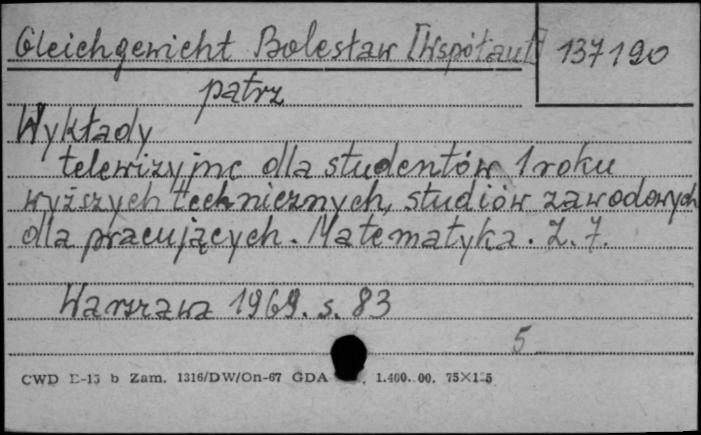 Gleichgewicht Bolesław [Współaut] 137190
patrz
Wykłady
telewizyjne dla studentów 1 roku
wyższych technicznych, studiów zawodowych
dla pracujących. Matematyka. Z. 7.
Warszawa 1969. s. 83
5
CWD E-15 b Zam. 1316/DW/On-67 GDA